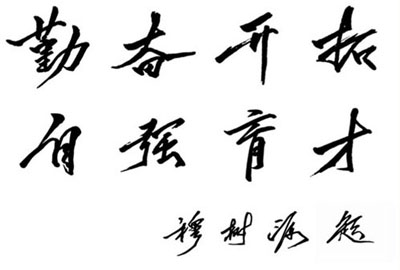 勤奋开拓
自强育才
穆树源题